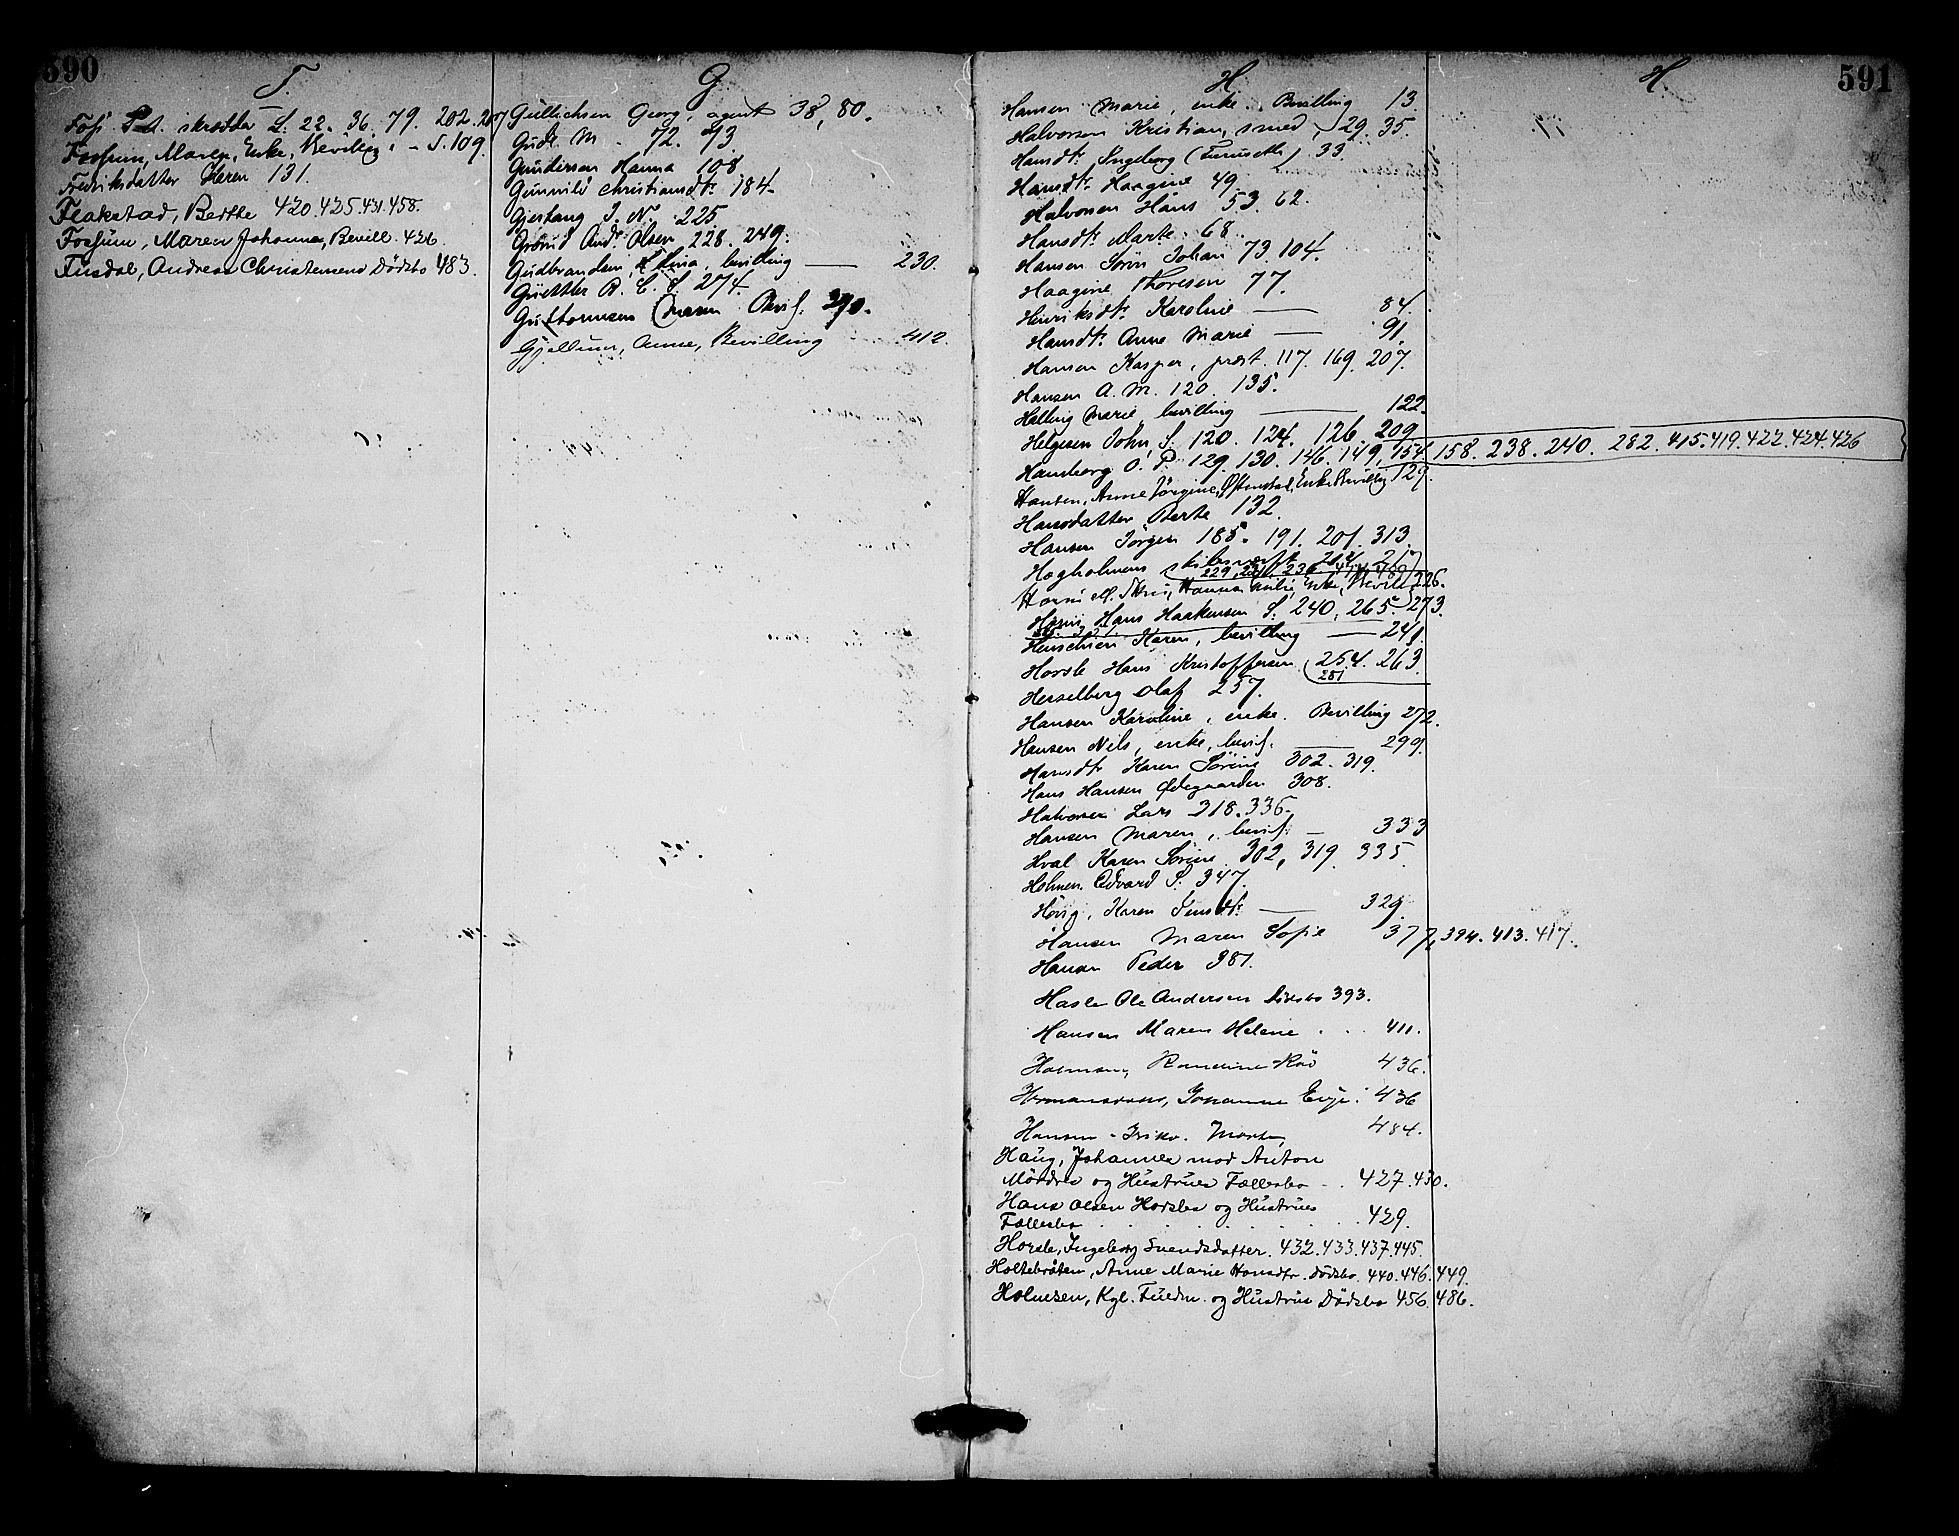 590
F.
Foss P. A. skrædder S. 22. 36. 79. 202. 207
Fossum, Maren, Enke, Bevilling. - S. 109.
Fredriksdatter Karen 131.
Flakstad, Berthe 420.425.431.458.
Fossum, Maren Johanne, Bevill. 426.
Fusdal, Andreas Christensens Dødsbo 483.
G
Gullichsen Georg, agent 38, 80.
Gude M. 72. 73.
Gundersen Hanna 108
Gunnild Christiansdtr 184.
Gjerlang J. N. 225
Grønli Andr. Olsen 228. 249.
Gudbrandsen, bevilling — 230.
Guettler B. C. S. 274.
Guttormsen Maren Bevil. 290.
Gjellum, Anne, Bevilling 412.
H
H.
591
Hansen Marie, enke. Bevilling 13
Halvorsen Kristian, smed, 29. 35.
Hansdtr Ingeborg (Furuseth) 33.
Hansdtr Haagine 49
Halvorsen Hans 53. 62.
Hansdtr Marte 68.
Hansen Sørin Johan 73. 104.
Haagine Thoresen 77.
Henriksdtr Karoline — 84.
Hansdtr Anne Marie — 91
Hansen Kasper, prest. 117. 169. 207.
Hansen A. M. 120. 135.
Helling Marie bevilling — 122.
Helgesen John S. 120. 124. 126. 209
Hamborg O. P. 129. 130. 146. 149. 154. 158. 238. 240. 282. 415.419.422.424.426
Hansen, Anne Jørgine, Enke, Bevilling 129.
Hansdatter Berte 132.
Hansen Jørgen 185. 191. 201. 313.
Hans Haakensen S. 240. 265. 273.
Henschien Karen, bevilling — 241.
Horsle Hans Kristoffersen 254. 263.
281
Hesselberg Olaf 257.
Hansen Karoline, enke. Bevilling 272.
Hansen Nils, enke, bevil. — 299.
Hansdtr Karen Sørine 302. 319.
Hans Hansen Ødegaarden 308.
Halvorsen Lars 318. 336.
Hansen Maren, bevil. — 333
Hval Karen Sørine 302, 319. 335.
Holmen Edvard S. 347.
Høvig, Karen Jensdtr — 329
Hansen Maren Sofie 377, 394. 413. 417.
Hansen Peder 381.
Hasle Ole Andersen Dødsbo 393.
Hansen Maren Helene . . . 411.
436.
Johanne Evje. 436
Hansen 484.
Haug, Johannes mod Anton
Mørdre og Hustrues Fællesbo . . 427.430.
Hans Olsen Horsles og Hustrues
Fællesbo . . . . . 429.
Horsle, Ingeborg Svendsdatter. 432.433.437.445.
Holtebråten, Anne Marie Hansdtr. Dødsbo. 440.446.449.
Holmsen, Kgl. Fuldm. og Hustrus Dødsbo 456.486.